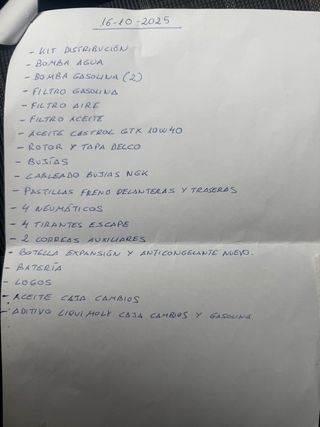 16-10-2025
- KIT DISTRIBUCIÓN
- BOMBA AGUA
- BOMBA GASOLINA (2)
- FILTRO GASOLINA
- FILTRO AIRE
- FILTRO ACEITE
- ACEITE CASTROL GTX 10W40
- ROTOR Y TAPA DELCO
- BUJÍAS
- CABLEADO BUJIAS NGK
- PASTILLAS FRENO DELANTERAS Y TRASERAS
- 4 NEUMÁTICOS
- 4 TIRANTES ESCAPE
- 2 CORREAS AUXILIARES
- BOTELLA EXPANSIÓN Y ANTICONGELANTE NUEVO.
- BATERÍA
- LOGOS
- ACEITE CAJA CAMBIOS
- ADITIVO LIQUI MOLY CAJA CAMBIOS Y GASOLINA.